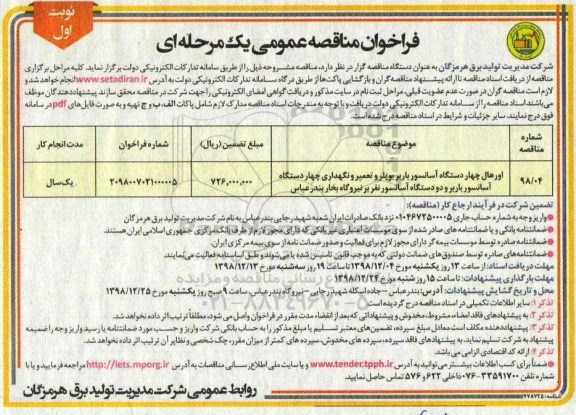 نوبت اول
فراخوان مناقصه عمومی یک مرحله ای
شرکت مدیریت تولید برق هرمزگان به عنوان دستگاه مناقصه گزار در نظر دارد، مناقصه مشروحه ذیل را از طریق سامانه تدارکات الکترونیکی دولت برگزار نماید. کلیه مراحل برگزاری
مناقصه از دریافت اسناد مناقصه تا ارائه پیشنهاد مناقصه گران و بازگشایی پاکت ها از طریق درگاه سامانه تدارکات الکترونیکی دولت به آدرس www.setadiran.ir انجام خواهد شد و
لازم است مناقصه گران در صورت عدم عضویت قبلی، مراحل ثبت نام در سایت مذکور و دریافت گواهی امضای الکترونیکی را جهت شرکت در مناقصه محقق سازند. پیشنهاددهندگان موظف
می باشند اسناد مناقصه را از سامانه تدارکات الکترونیکی دولت دریافت و با توجه به مندرجات اسناد مناقصه ذیل مدارک لازم شامل پاکات الف، ب و ج تهیه و به صورت فایل های pdf در سامانه
فوق درج نمایند. سایر جزئیات و شرایط در اسناد مناقصه درج شده است.
شماره مناقصه | موضوع مناقصه | مبلغ تضمین (ریال) | شماره فراخوان | مدت انجام کار
۹۸/۰۴ | اورهال چهار دستگاه آسانسور باربر بویلر و تعمیر و نگهداری چهار دستگاه آسانسور باربر و دو دستگاه آسانسور نفر بر نیروگاه بخار بندرعباس | ۷۲۶,۰۰۰,۰۰۰ | ۲۰۹۸۰۰۷۰۲۱۰۰۰۰۰۵ | یک سال
تضمین شرکت در فرآیند ارجاع کار (مناقصه):
واریز وجه به شماره حساب جاری ۰۱۰۴۶۷۲۵۰۰۰۵ نزد بانک صادرات ایران شعبه شهید رجایی بندرعباس به نام شرکت مدیریت تولید برق هرمزگان
ضمانتنامه بانکی و یا ضمانتنامه های صادر شده از سوی موسسات اعتباری غیر بانکی که دارای مجوز لازم از طرف بانک مرکزی جمهوری اسلامی ایران هستند.
ضمانتنامه صادره توسط موسسات بیمه گر دارای مجوز لازم برای فعالیت و صدور ضمانت نامه از سوی بیمه مرکزی ایران.
ضمانتنامه های صادره توسط صندوق های ضمانت دولتی که به موجب قانون تاسیس شده یا می شوند و طبق اساسنامه فعالیت می نمایند.
مهلت دریافت اسناد: از ساعت ۱۳ روز یکشنبه مورخ ۱۳۹۸/۱۲/۰۴ تا ساعت ۱۹ روز سه شنبه مورخ ۱۳۹۸/۱۲/۱۳
مهلت بارگذاری پیشنهادات: تا ساعت ۱۵ روز شنبه مورخ ۱۳۹۸/۱۲/۲۴
محل و تاریخ گشایش پیشنهادات: آدرس: بندرعباس - جاده اسکله شهید رجایی - نیروگاه بندرعباس، ساعت ۹ صبح روز یکشنبه مورخ ۱۳۹۸/۱۲/۲۵
تذکر ۱: سایر اطلاعات تکمیلی در اسناد مناقصه درج گردیده است
تذکر ۲: به پیشنهادهای فاقد امضاء، مشروط، مخدوش و پیشنهاداتی که بعد از انقضاء مدت مقرر در فراخوان واصل می شود، مطلقاً ترتیب اثر داده نخواهد شد.
تذکر ۳: پیشنهاددهنده مکلف است معادل مبلغ سپرده، تضمین های معتبر تسلیم یا مبلغ مذکور را به حساب بانکی شرکت واریز و حسب مورد ضمانتنامه یا رسید واریز وجه را ضمیمه
پیشنهاد به شرکت تسلیم نماید. به پیشنهادهای فاقد سپرده، سپرده های مخدوش، سپرده های کمتر از میزان مقرر، چک شخصی و نظایر آن ترتیب اثر داده نخواهد شد.
تذکر ۴: ارائه کد اقتصادی الزامی می باشد.
ضمناً برای کسب اطلاعات بیشتر می توانید به آدرس www.tender.tpph.ir و سایت ملی اطلاع رسانی مناقصات به آدرس http://iets.mporg.ir مراجعه فرمایید و یا با
شماره تلفن ۳۳۵۹۱۷۰۰-۰۷۶ داخلی ۶۲۲ و ۵۷۶ تماس حاصل نمایید.
روابط عمومی شرکت مدیریت تولید برق هرمزگان